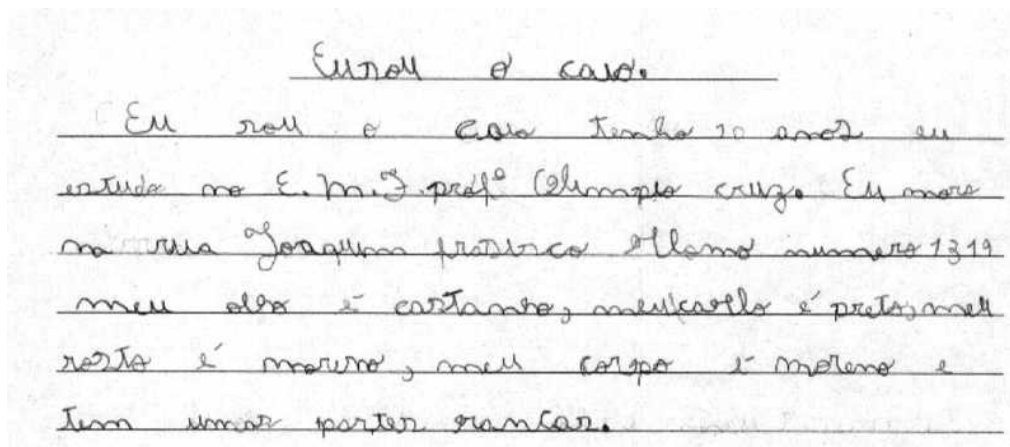 Eu sou o caio.
Eu sou o caio tenho 10 anos eu
estudo no E.M.F. profº Olimpio cruz. Eu moro
na rua Joaquim numero 1319
meu olho é castanho, meu cavllo é preto, meu
rosto é moreno, meu corpo é moreno e
tem umas partes rancas.